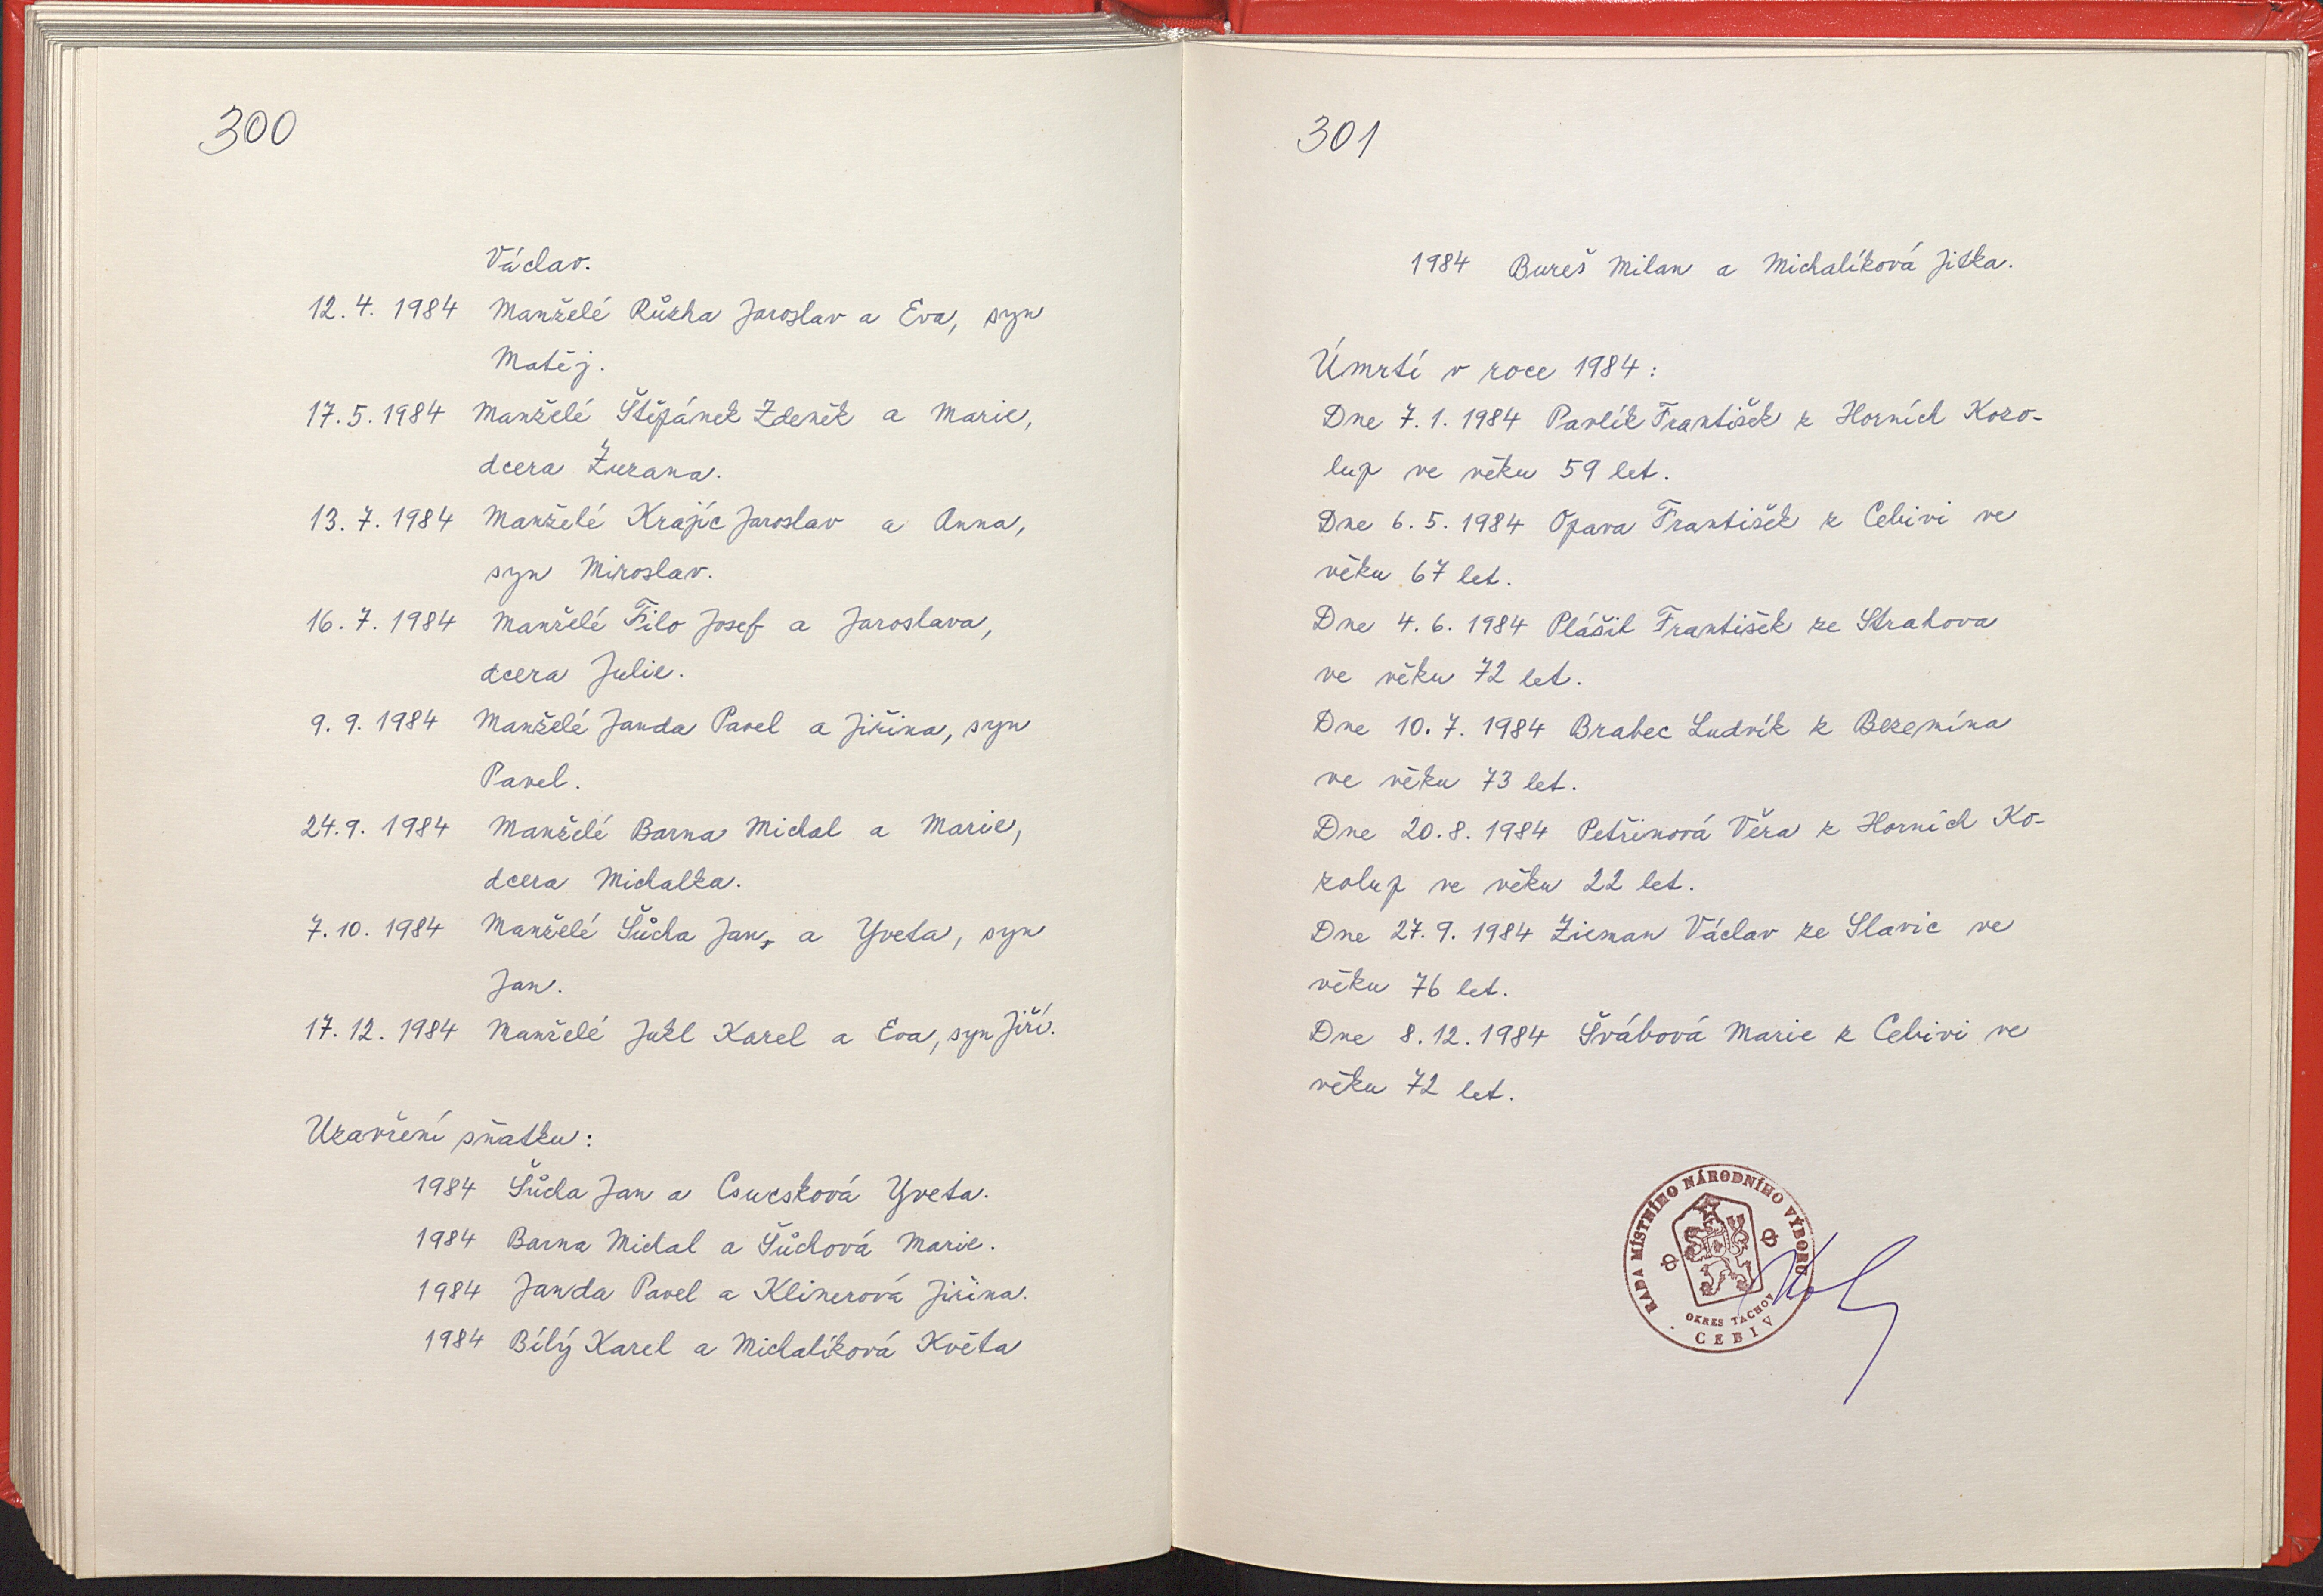 300
Václav.
12.4. 1984 Manželé Růžha Jaroslav a Eva, syn
Matěj.
17.5.1984 Manželé Štěpánek Zdeněk a Marie,
dcera Zuzana.
13.7.1984 Manželé Krajíc Jaroslav a Anna,
syn Miroslav.
16.7.1984 Manželé Filo Josef a Jaroslava,
dcera Julie.
9.9.1984 Manželé Janda Pavel a Jiřina, syn
Pavel.
24.9. 1984 Manželé Barna Michal a Marie,
dcera Michalka.
7.10. 1984 Manželé Šůcha Jan, a Yveta, syn
Jan.
17.12.1984 Manželé Jukl Karel a Eva, syn Jiří.
Uzavření sňatku:
1984 Šůcha Jan a Csucsková Yveta.
1984 Barna Michal a Šůchová Marie.
1984 Janda Pavel a Klinerová Jiřina.
1984 Bílý Karel a Michalíková Květa
301
1984 Bureš Milan a Michalíková Jitka.
Úmrtí v roce 1984:
Dne 7.1.1984 Pavlík František z Horních Kozo-
lup ve věku 59 let.
Dne 6.5.1984 Opava František z Cebivi ve
věku 67 let.
Dne 4.6.1984 Plášil František ze Strahova
ve věku 72 let.
Dne 10.7.1984 Brabec Ludvík z Bezemína
ve věku 73 let.
Dne 20.8.1984 Petřinová Věra z Horních Ko-
zolup ve věku 22 let.
Dne 27.9.1984 Zieman Václav ze Slavic ve
věku 76 let.
Dne 8.12.1984 Švábová Marie z Cebivi ve
věku 72 let.
RADA MÍSTNÍHO NÁRODNÍHO VÝBORU
OKRES TACHOV
CEBIV